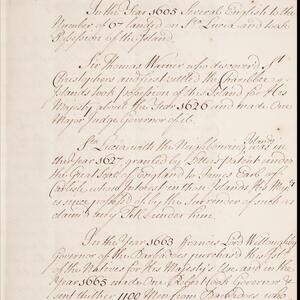 In the Year 1605 Several English to the
Number of 67 landed in Sta Lucia and took
Possession of the Island.
Sir Thomas Warner who discovered St
Christophers and first settled the Charibbee
Islands took possession of this Island for His
Majesty about the Year 1626 and made One
Major Judge Governor of it.
Sta Lucia with the Neighbouring Islands was in
the year 1627 granted by Letters patent under
the Great Seal of England to James Earl of
Carlisle whose Interest in those Islands His Majty
is now possess'd of by the Surrender of such as
claim'd any Title under him.
In the Year 1663 Francis Lord Willoughby
Governor of the Barbadoes purchased this Island
of the Natives for His Majesty's Use and in the
Year 1665 made One Robert Governor &
sent thither 1100 Men from Barbadoes who